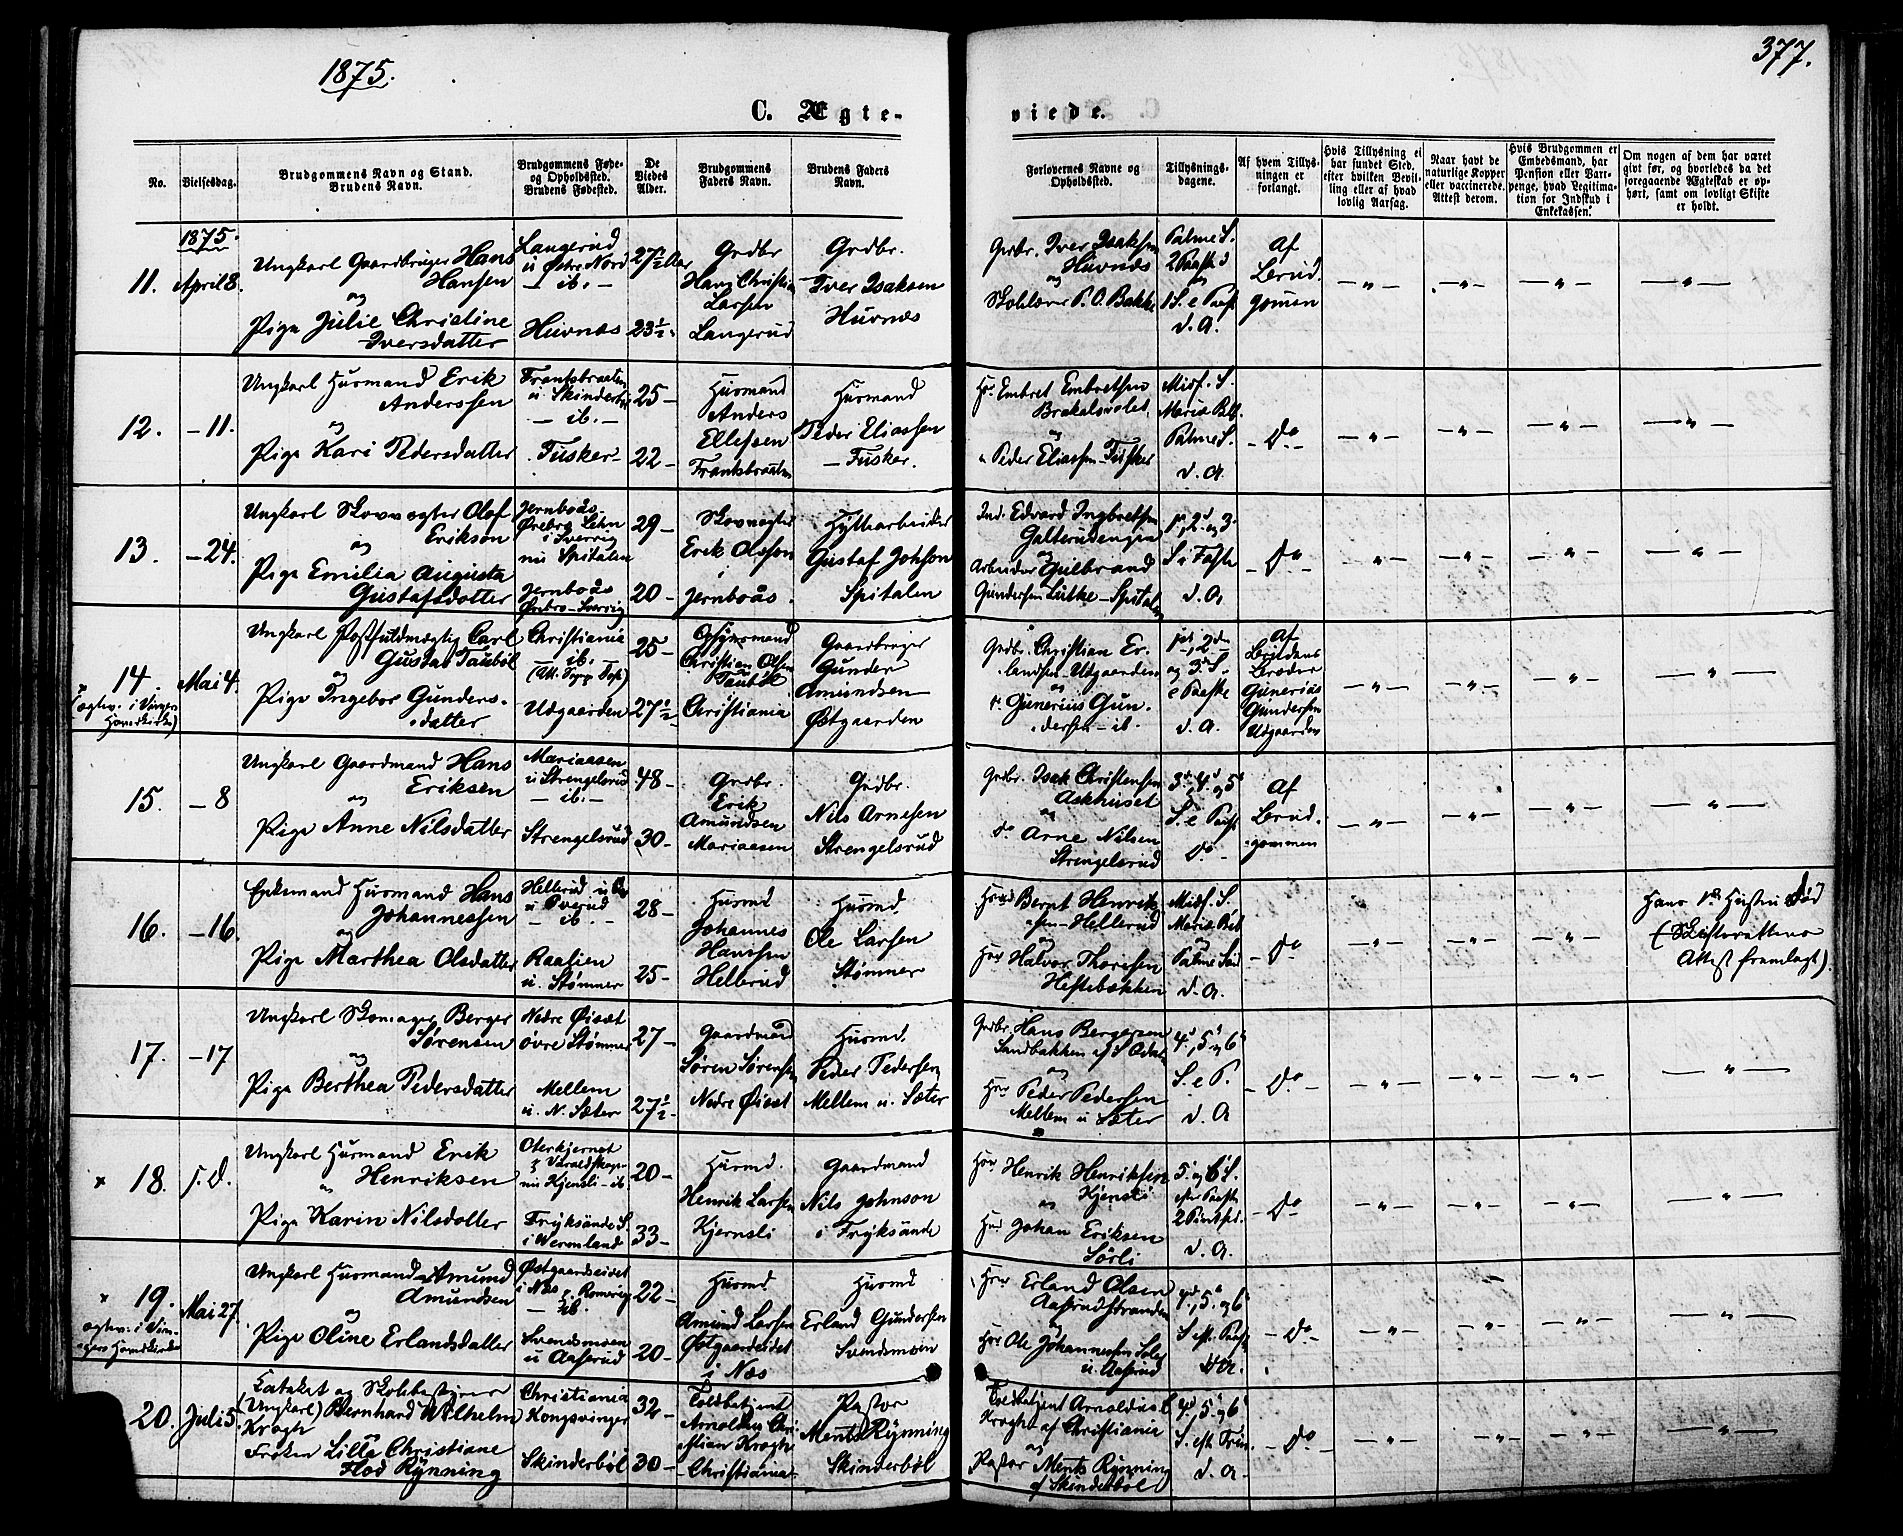 1875.
377.
C. Ægte-
viede.
No.
Vielsesdag.
Brudgommens Navn og Stand.
Brudens Navn.
Brudgommens Føde-
og Opholdssted.
Brudens Fødested.
De
Viedes
Alder.
Brudgommens
Faders Navn.
Brudens Faders
Navn.
Forlovernes Navne og
Opholdssted.
Tillysnings-
dagene.
Af hvem Tillys-
ningen er
forlangt.
Hvis Tillysning ei
har fundet Sted,
efter hvilken Bevil-
ling eller af hvad
lovlig Aarsag.
Naar havt de
naturlige Kopper
eller vaccinerede.
Attest derom.
Hvis Brudgommen er
Embedsmand, har
Pension eller Vart-
penge, hvad Legitima-
tion for Indskud i
Enkekassen.
Om nogen af dem har været
givt før, og hvorledes da det
foregaaende Ægteskab er op-
hørt, samt om lovligt Skifte
er holdt.
1875.
11. April 8.
Ungkarl Gaardbruger Hans
Hansen
og
Pige Julie Christine
Iversdatter
Langerud
u Østre Nord
- ib. -
Huvnæs
27½ Aar
23½
Grdbr
Hans Christian
Larsen
Langerud
Grdbr.
Iver Isaksen
Huvnæs
Grdbr. Iver Isaksen
Huvnæs
og
Skolelærer P. O. Bakke
Palme S.
2 Paaske d
1 S. e Paask
d. A.
Af
Brud
gomen
12. - 11.
Ungkarl Husmand Erik
Anderssen
og
Pige Kari Pedersdatter
Frantsbraaten
u. Skinderbøl
- ib. -
Tusker
25 -
22 -
Husmand
Anders
Ellefsen
Frantsbraaten
Husmand
Peder Eliassen
- Tusker.
Hr. Embret Embretsen
Brakalsvolet
og
" Peder Eliassen - Tusker
Midf. S.
Mariæ Beb.
Palme S.
d. A.
- Do -
13. - 24.
Ungkarl Skovvogter Olof
Erikson
og
Pige Emilia Augusta
Gustafsdotter
Jernboås
Ørebro Lehn
i Sverrig
nu Spitalen
Jernboås
Ørebro - Sverrig
29 -
20 -
Skovvogter
Erik Olsson
i
Jernboås.
Hyttearbeider
Gustaf Johson
Spitalen
Ind. Edvard Ingbretsen
Galterudengen
og
Arbeider Gulbrand
Gundersen Lütke - Spitalen
1ste, 2d og 3
S. i Faste
d. A
- Do -
14. Mai 4.
(ægtev. i Vinger
Hovedkirke)
Ungkarl Postfuldmægtig Carl
Gustav Taubøl
og
Pige Ingebor Gunders-
datter
Christiania
ib.
Udgaarden
25 -
27½ -
Opsynsmand
Christian Olsen
Taubøl
Christiania
Gaardbruger
Gunder
Amundsen
Østgaarden
Grdbr. Christian Er-
landsen - Udgaarden
og
Gunerius Gun-
dersen - ib.
1ste, 2den
og 3d S.
e Paaske
d. A.
Af
Brudens
Broder
Gunerius
Gundersen
Udgaarden
15. - 8
Ungkarl Gaardmand Hans
Eriksen
og
Pige Anne Nilsdatter
Mariaasen
u Strengelsrud
- ib. -
Strengelsrud
48 -
30 -
Grdbr.
Erik
Amundsen
Mariaasen
Grdbr.
Nils Arnesen
Strengelsrud
Grdbr. Isak Christensen
Askhuset
og
do Arne Nilsen
Strengelsrud
3d, 4d og 5
S. e Paask
Do -
Af
Brud-
gommen
16. - 16.
Enkemand Husmand Hans
Johannessen
og
Pige Marthea Olsdatter
- ib. -
Raasien
u. Stømmer
28 -
25 -
Husmd
Johannes
Hanssen
Hellerud
Husmd.
Ole Larsen
Stømner
Hmd Bernt Henrik-
sen - Hellerud
og
Hmd Halvor Thoresen
Heftebækken
Midf. S.
Mariæ Beb
Palme Sød
d. A.
- Do -
Hans 1ste Hustru Død
(Skifterettens
Attest fremlagt).
17. - 17
Ungkarl Skomager Berger
Sørensen
og
Pige Berthea Pedersdatter
Nedre Øiset
øvre Stømmer
Mellem
u. N. Sæter
27 -
27½ -
Gaardmd
Søren Sørensen
Nedre Øiset
Husmd.
Peder Pedersen
Mellem u. Sæter
Grdbr. Hans Bergersen
Sandbakken af S Odal
og
Hmd Peder Pedersen
Mellem u Sæter
4d, 5 og 6
S. e P.
d. A
- Do -
x 18. s. D.
Ungkarl Husmand Erik
Henriksen
og
Pige Karin Nilsdotter
Oterkjernet
nu Kjensli - ib.
Fryksände S.
i Wermland
20 -
33 -
Husmd.
Henrik Larsen
Kjernsli
Gaardmand
Nils Johnson
i Fryksände
Hmd Henrik Henriksen
Kjensli
og
Hmd Johan Eriksen
Sörli
5 og 6 S.
efter Paaske
2 Pintsed.
d. A.
- Do -
x 19. Mai 27.
ægtev. i Vin-
gers Hovedkirke
Ungkarl Husmand Amund
Amundsen
og
Pige Oline Erlandsdatter
Østgaardseidet
i Næs p. Romerig
- ib.
Svendsmoen
u Aaserud
22 -
20 -
Husmd
Amund Larsen
Østgaardeidet
i Næs
Husmd
Erland Gundersen
Svendsmoen
Hmd Erland Olsen
Aaserudstranden
og
Hmd Ole Johannessen
u. Aaserud
4d, 5 og 6
S. eft. Paaske
d. A.
- Do -
20. Juli 5.
Kateket og Skolebestyrer
(Ungkarl) Bernhard Wilhelm
Krogh
og
Frøken Lilla Christiane
Flod Rynning
Christiania
Kongsvinger
Skinderbøl
32 -
30 -
Toldbetjent
Arnoldus Chri-
stian Krogh
- Christiania -
Pastor
Ments Rynning
Skinderbøl
Toldbetjent Arnoldus C
Krogh af Christiania
og
Pastor Ments Rynning
af Skinderbøl
4d, 5 og 6
S. eft Trin.
d. A.
- Do -